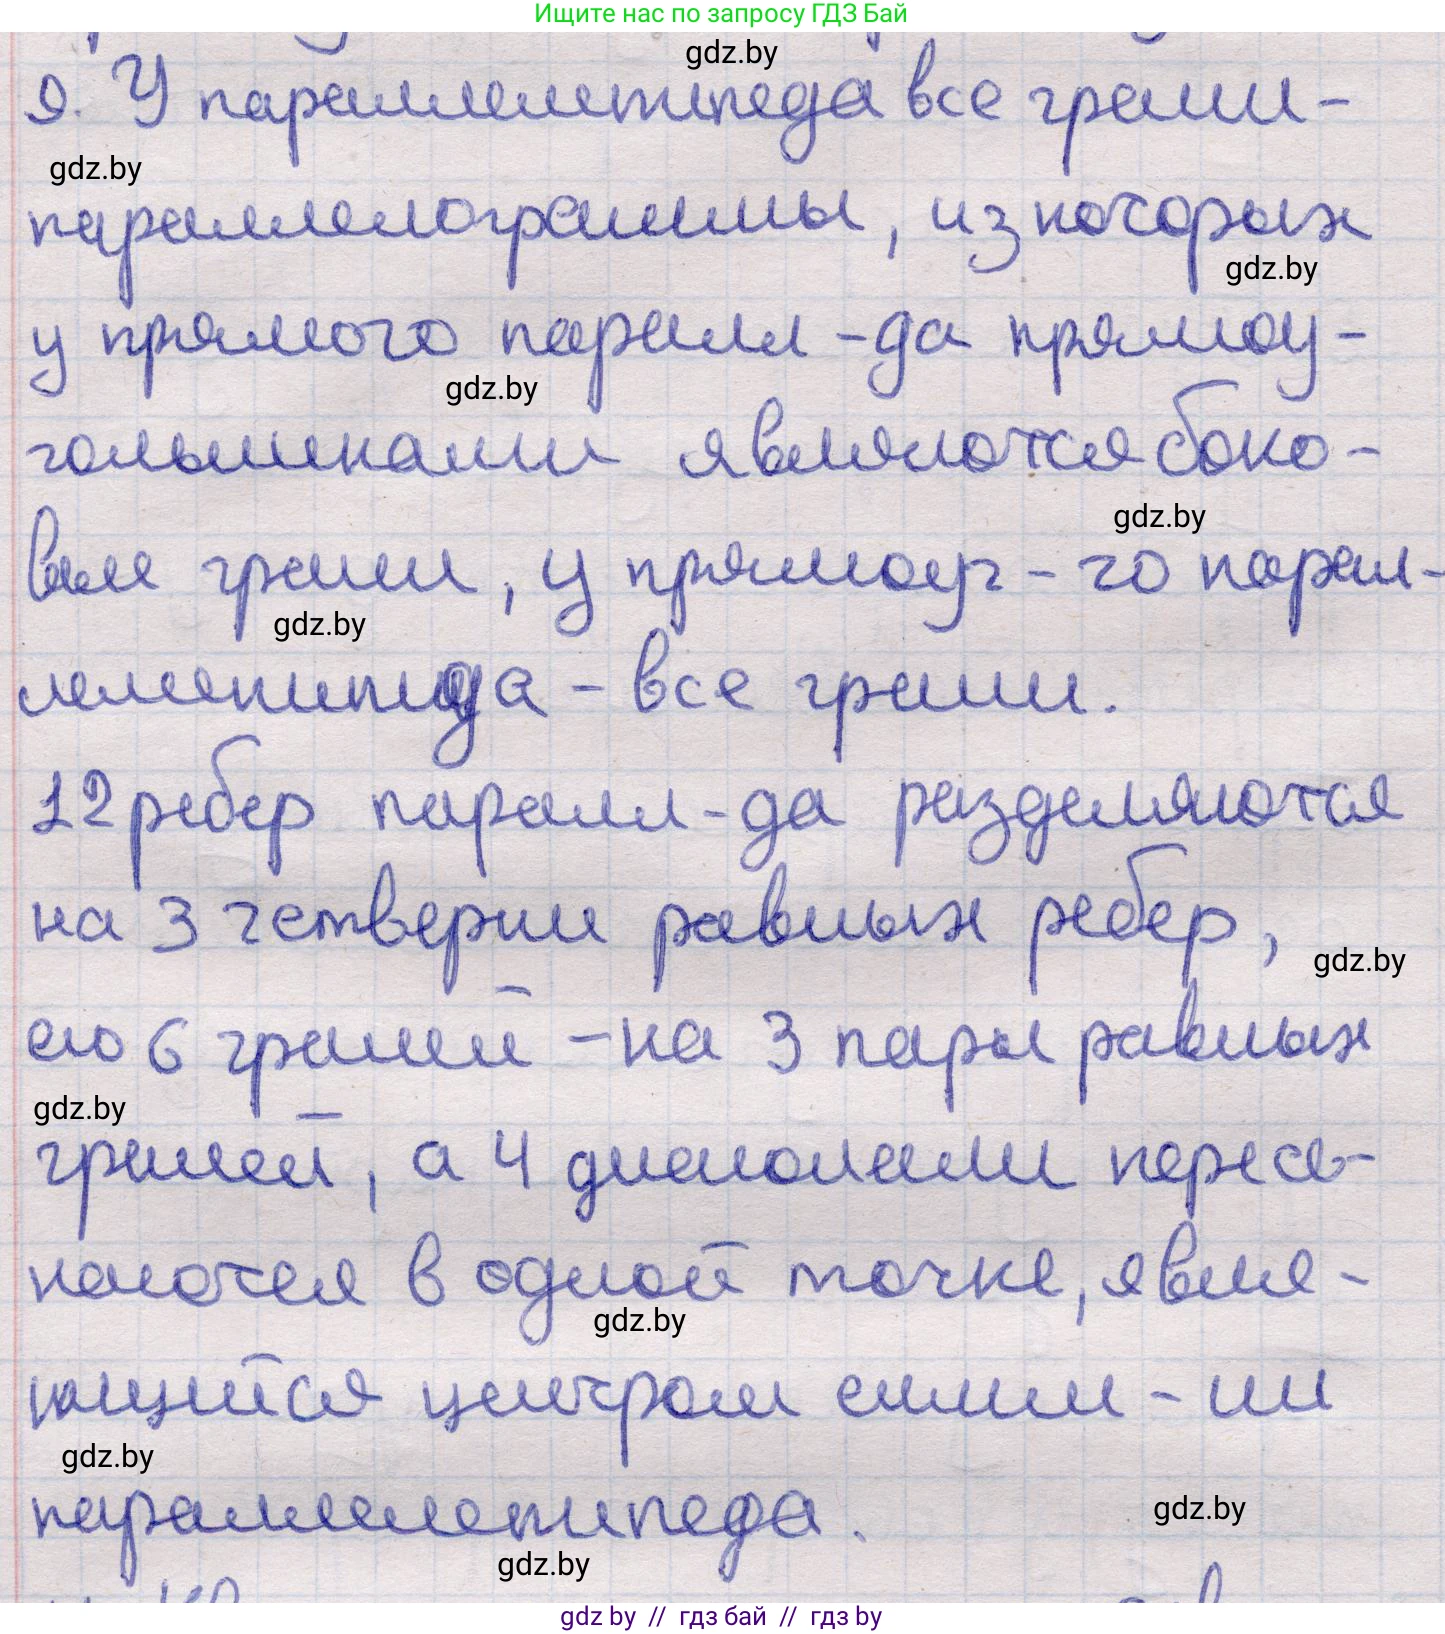 Ищите нас по запросу ГДЗ Бай
gdz.by
9. У параллелепипеда все грани-
gdz.by
параллелограммы, из которых
gdz.by
у прямого паралл-да прямоу-
gdz.by
гольниками являются боко-
gdz.by
вые грани, у прямоуг-го парал-
gdz.by
лелепипеда - все грани.
12 ребер паралл-да разделяются
на 3 четверки равных ребер,
gdz.by
его 6 граней - на 3 пары равных
gdz.by
граней, а 4 диагонали пересе-
каются в одной точке, явля-
gdz.by
ющийся центром симм-ии
gdz.by
параллелепипеда.
gdz.by
gdz.by
gdz.by // гдз бай // гдз by